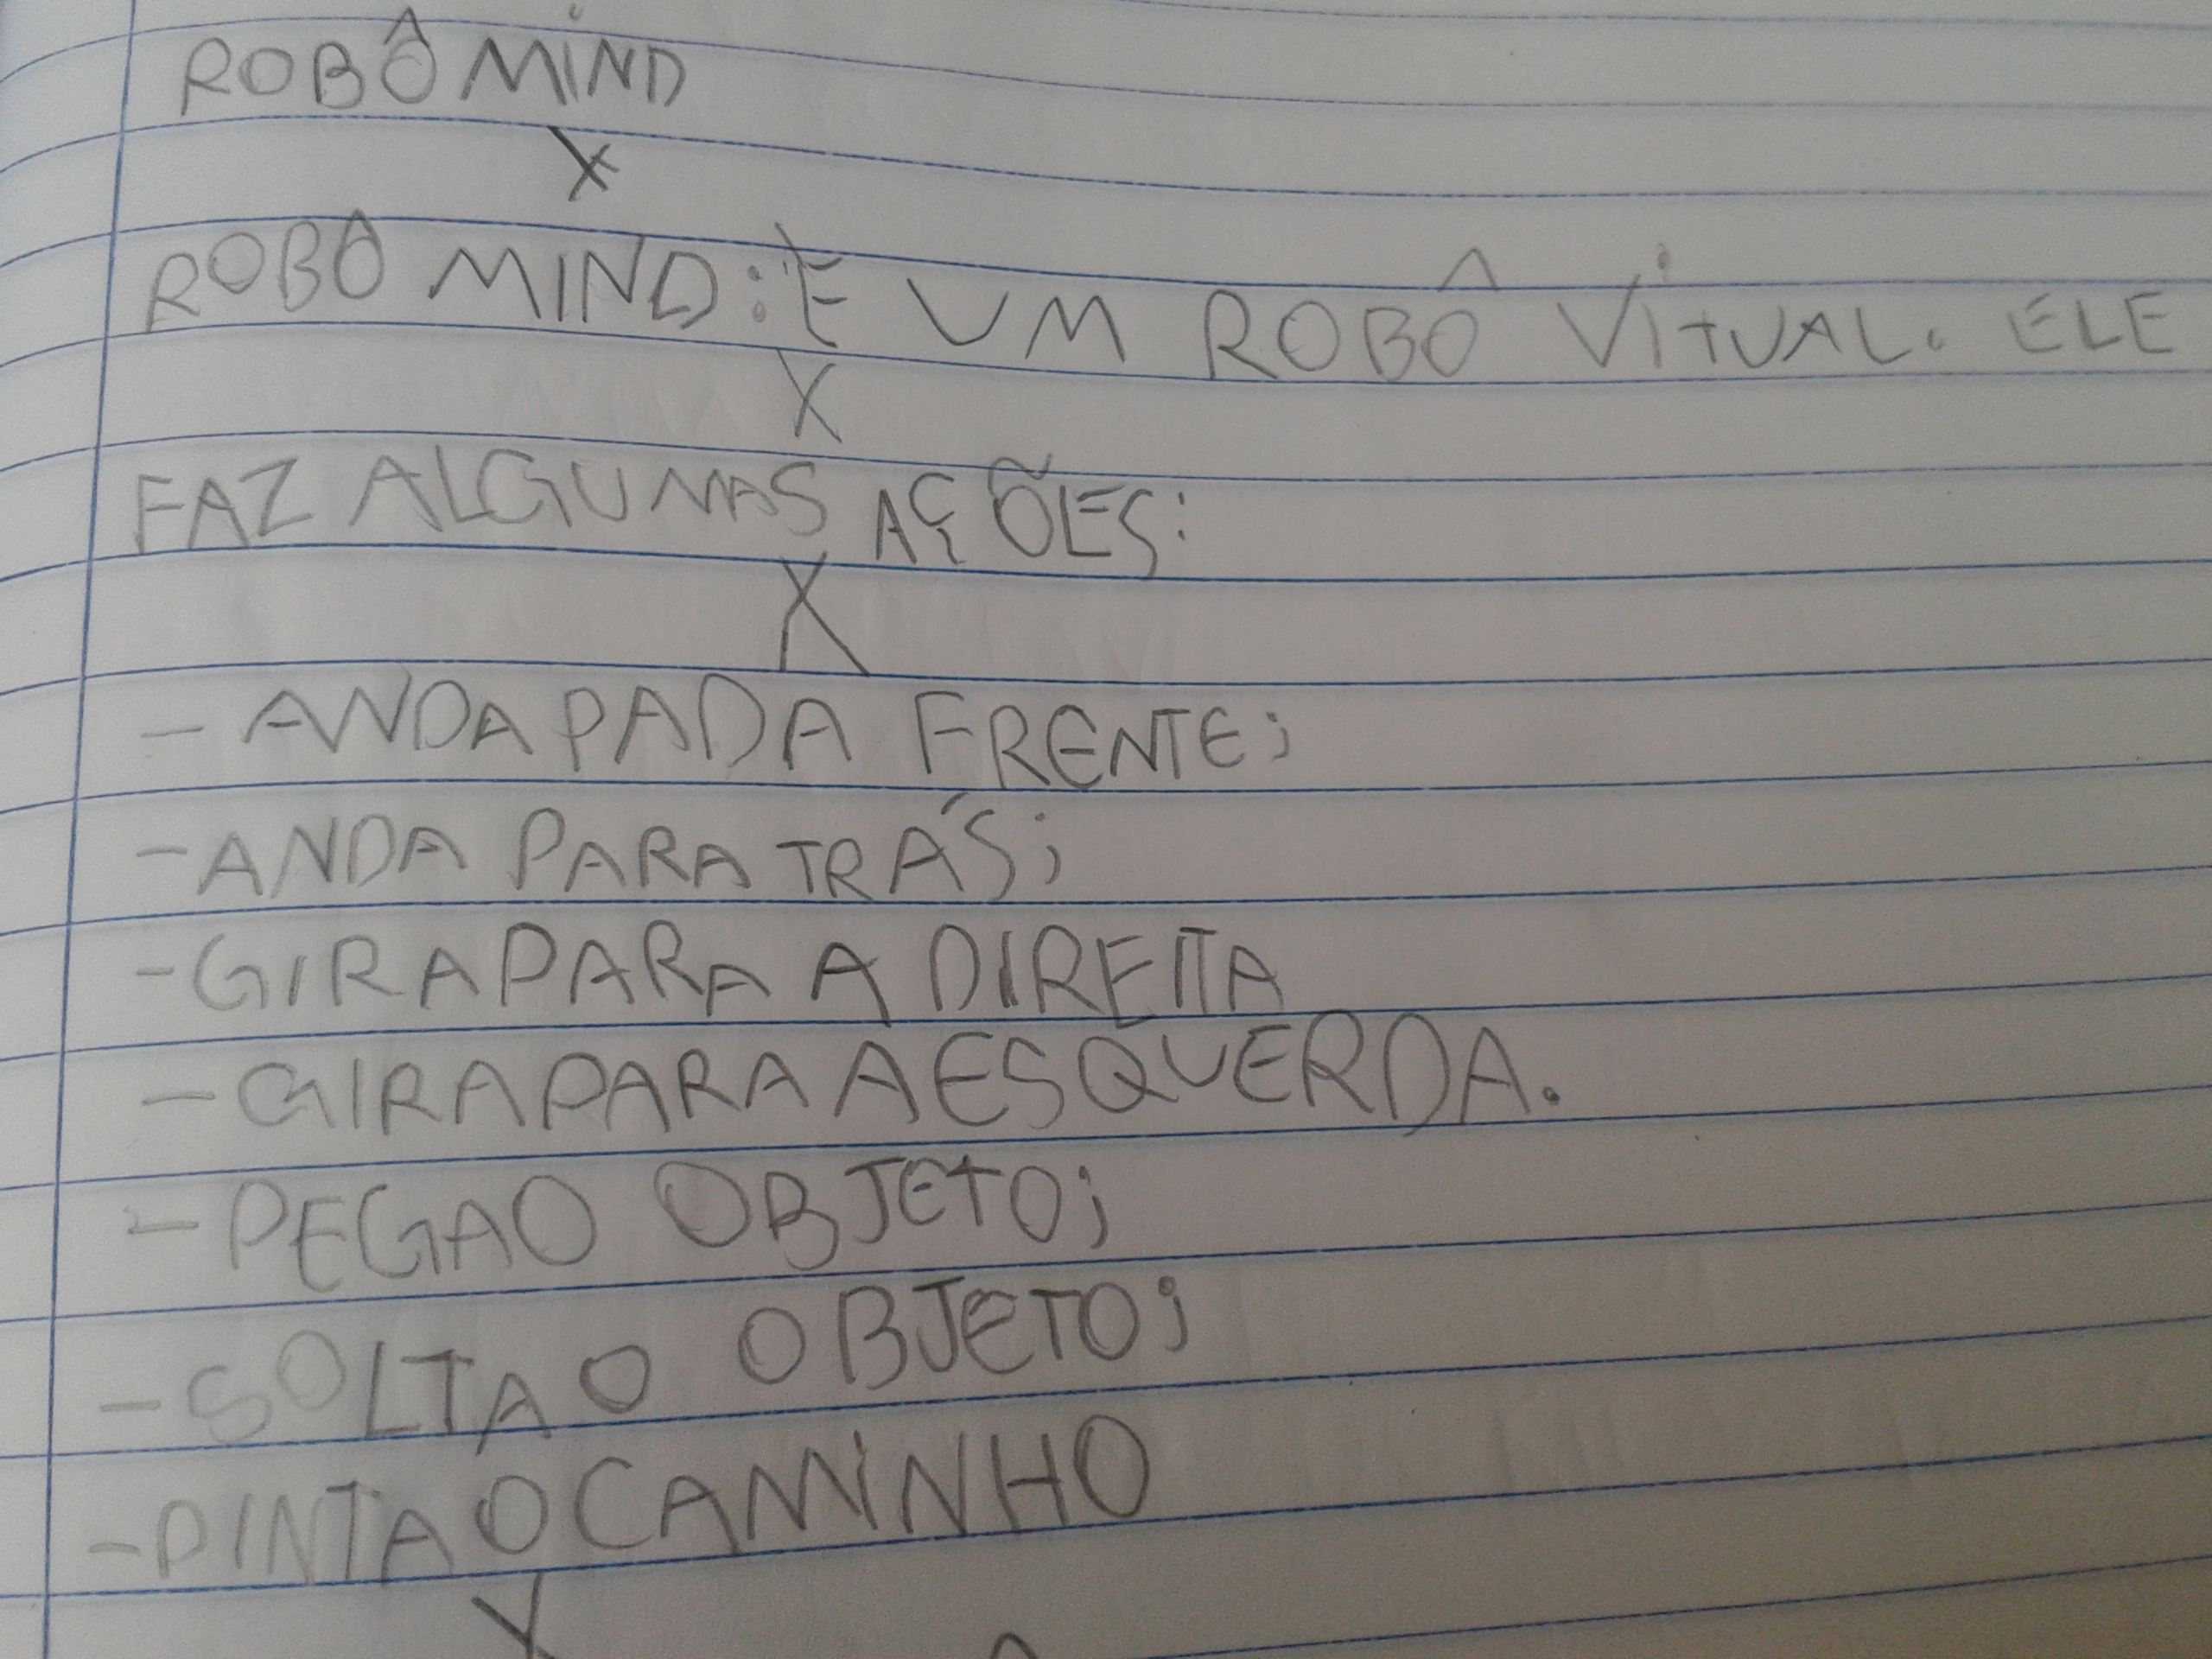 ROBÔ MIND
X
ROBÔ MIND: È UM ROBÔ VITUAL. ELE
X
FAZ ALGUMAS AÇÕES:
X
- ANDA PADA FRENTE;
- ANDA PARA TRÁS;
- GIRA PARA A DIREITA
- GIRA PARA A ESQUERDA.
- PEGA O OBJETO;
- SOLTA O OBJETO;
- PINTA O CAMINHO
X